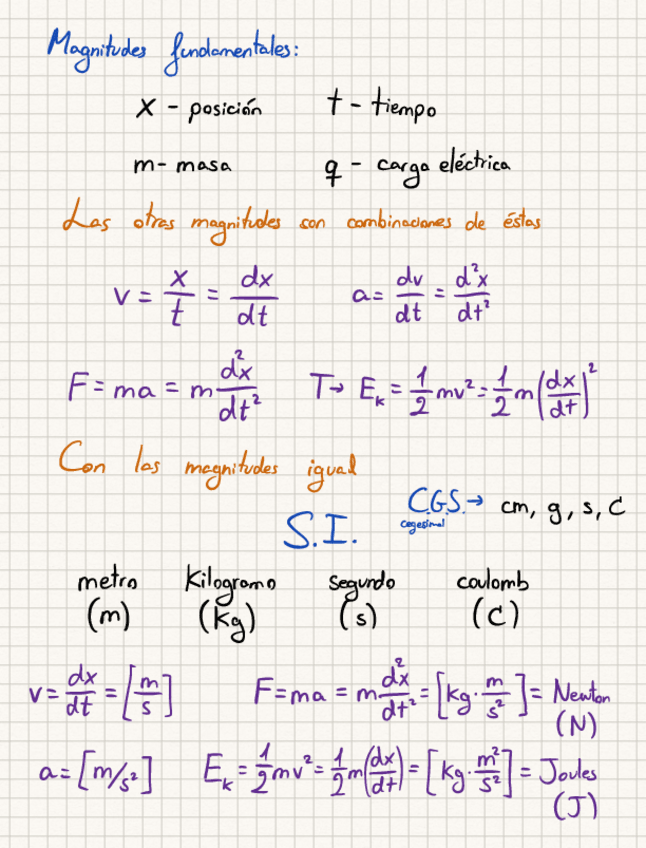 Magnitudes fundamentales:
x - posición t - tiempo
m - masa q - carga eléctrica
Las otras magnitudes son combinaciones de éstas
v = x/t = dx/dt a = dv/dt = d²x/dt²
F = ma = m d²x/dt² T → E_k = 1/2 mv² = 1/2 m(dx/dt)²
Con las magnitudes igual
C.G.S. → cm, g, s, C
cegesimal
S.I.
metro Kilogramo segundo coulomb
(m) (kg) (s) (C)
v = dx/dt = [m/s] F = ma = m d²x/dt² = [kg · m/s²] = Newton
(N)
a = [m/s²] E_k = 1/2 mv² = 1/2 m(dx/dt) = [kg · m²/s²] = Joules
(J)